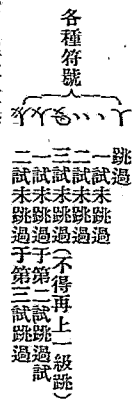 各種符號
跳過
一試未跳過
二試未跳過
三試未跳過(不得再上一級跳)
一試未跳過于第二試跳過試
二試未跳過于第三試跳過